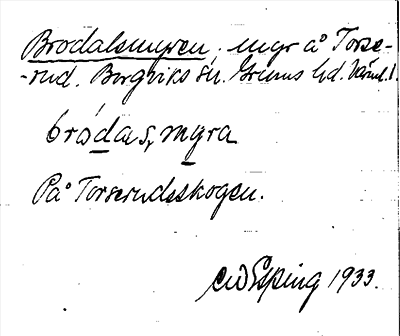 Brodalsmyren. myr å Torse-
-rud. Borgviks sn. Grums hd. Värml. l.
bródas, myra
På Torserudsskogen.
CW Esping 1933.